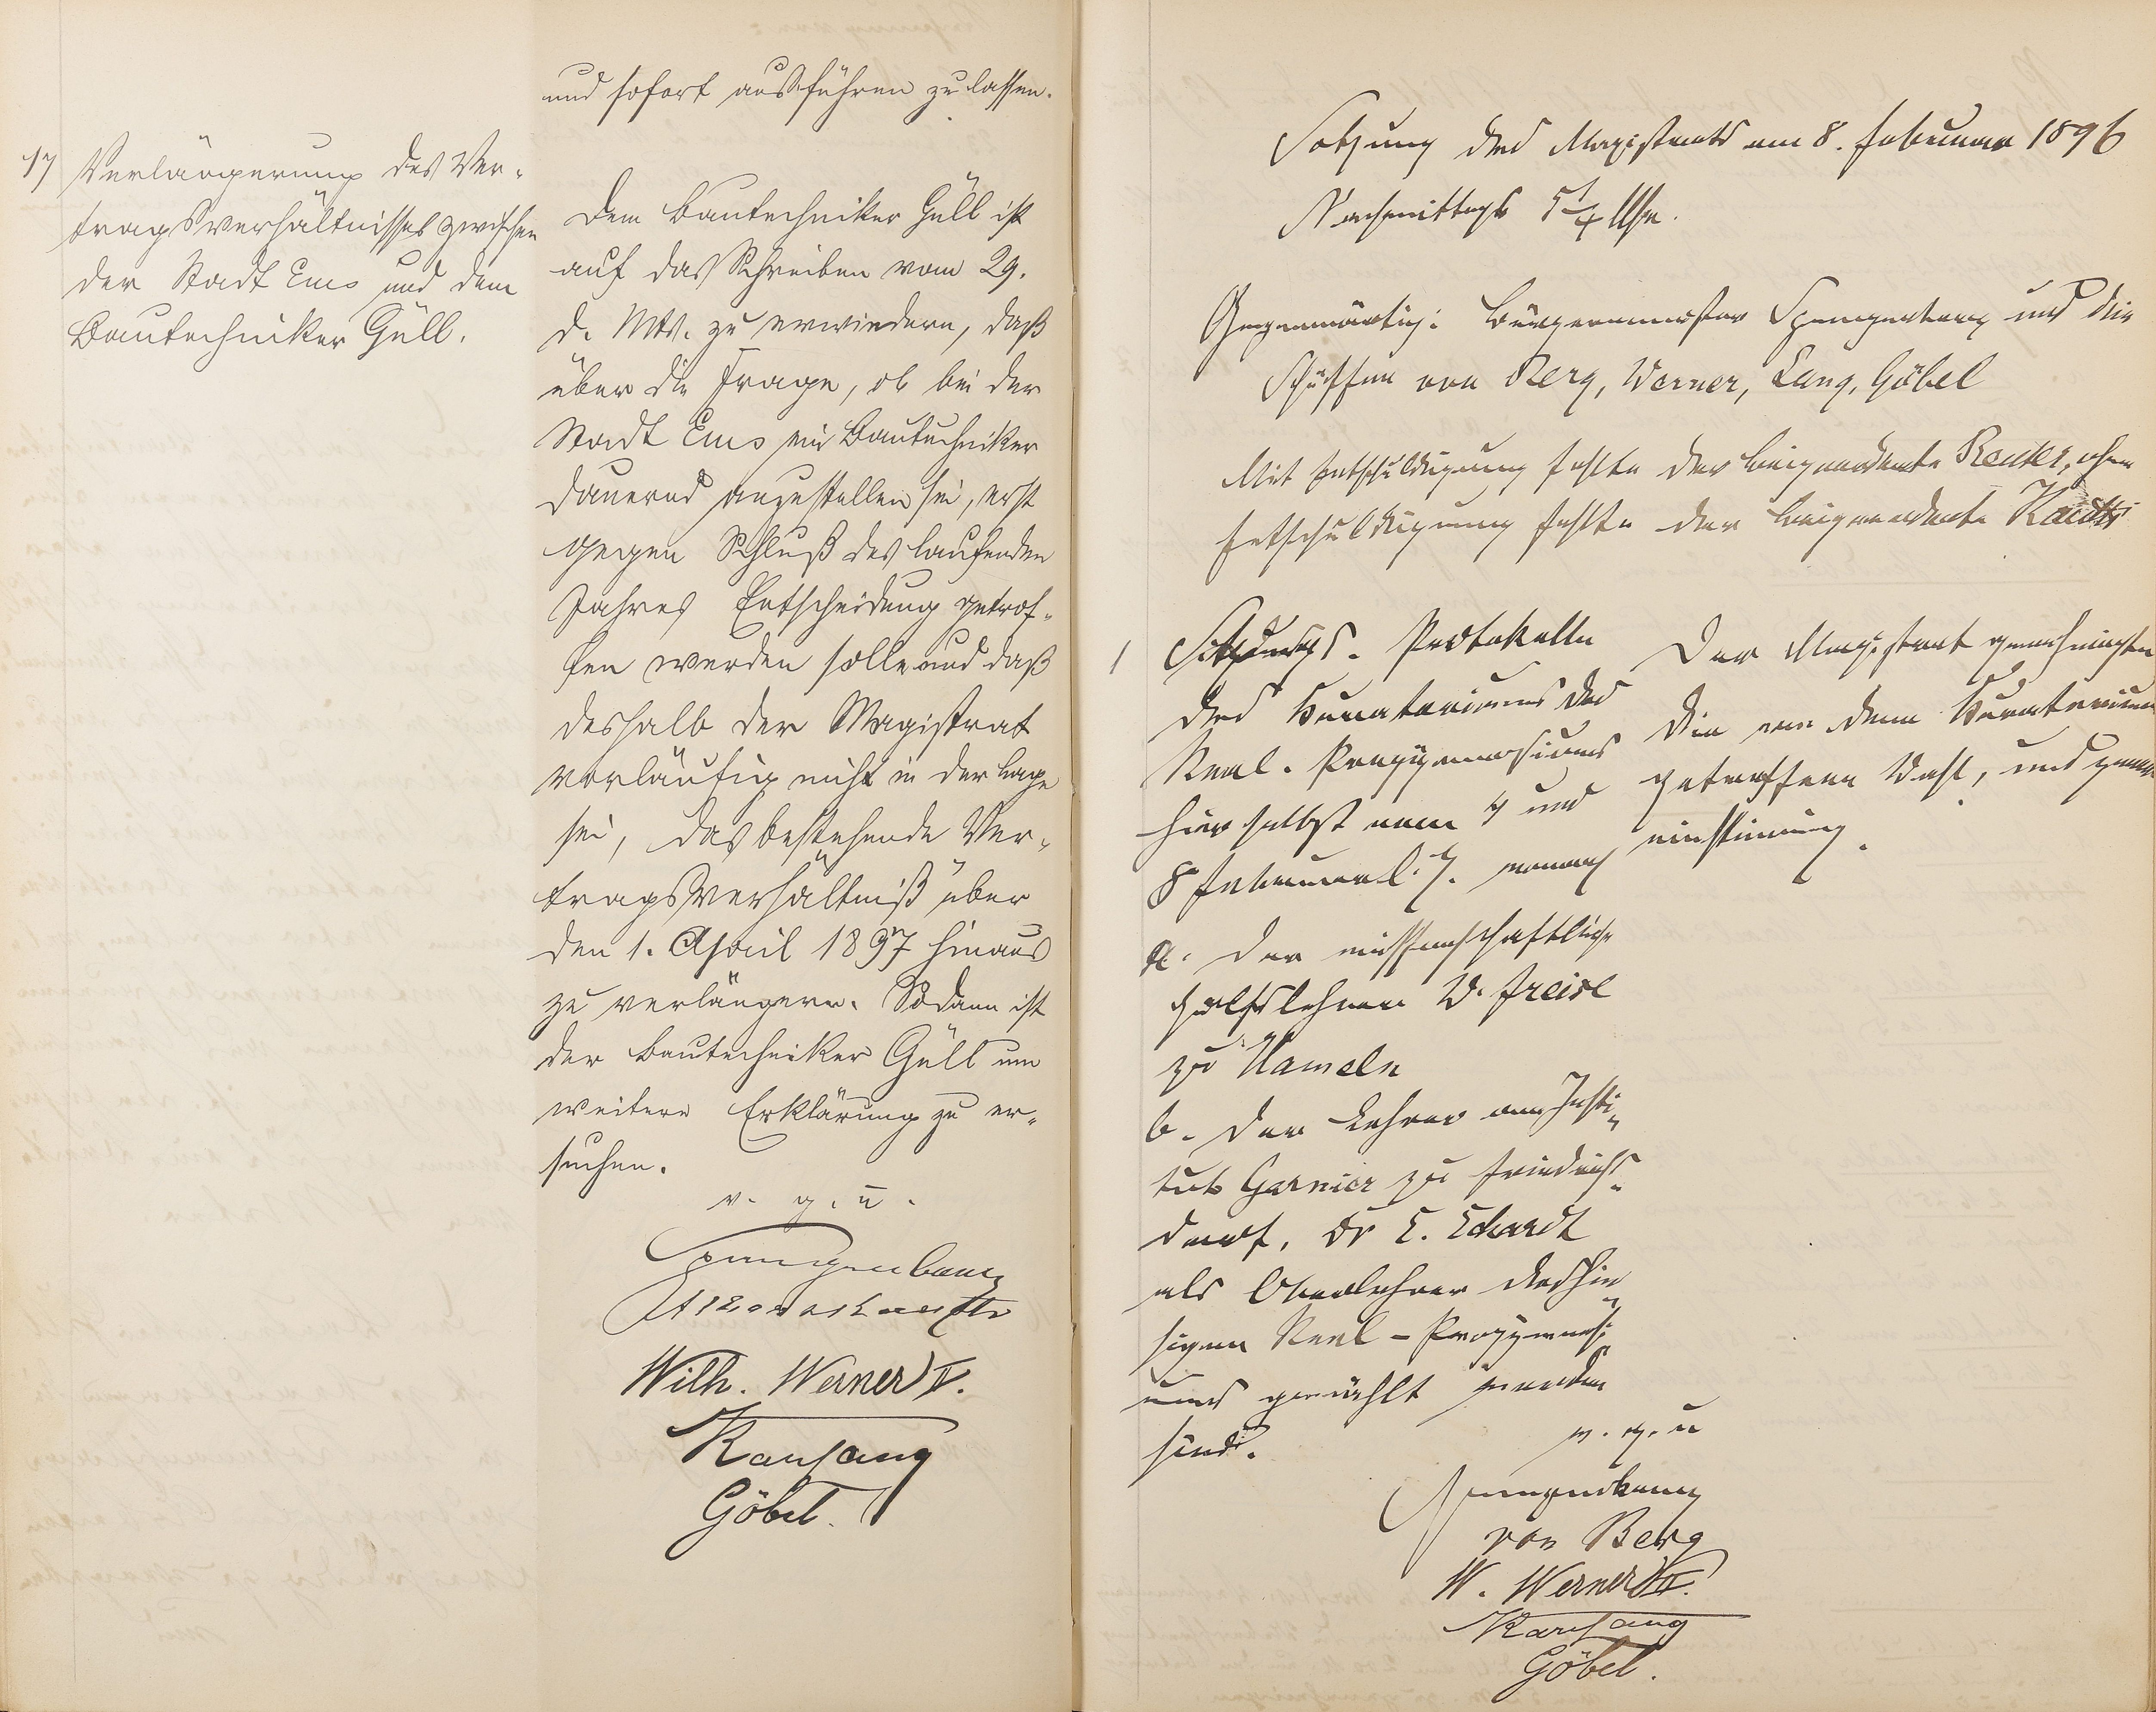 und sofort ausführen zu lassen.
17 Verlängerung des Ver-
tragsverhältnisses zwischen
der Stadt Ems und dem
Bautechniker Güll.
Dem Bautechniker Güll ist
auf das Schreiben vom 29.
d. Mts. zu erwiedern, daß
über die Frage, ob bei der
Stadt Ems ein Bautechniker
dauernd anzustellen sei, erst
gegen Schluß des laufenden
Jahres Entscheidung getrof-
fen werden solle und daß
deshalb der Magistrat
vorläufig nicht in der Lage
sei, das bestehende Ver-
tragsverhältniß über
den 1. April 1897 hinaus
zu verlängern. Sodann ist
der Bautechniker Güll um
weitere Erklärung zu er-
suchen.
v. g. u.
Spangenberg
Wilh. Werner II.
Karl Lang
Göbel.
Sitzung des Magistrats am 8. Februar 1896
Nachmittags 5 1/4 Uhr.
Gegenwärtig: Bürgermeister Spangenberg und die
Schöffen von Berg, Werner, Lang, Göbel
Mit Entschuldigung fehlte der Beigeordnete Reuter, ohne
Entschuldigung fehlte der Beigeordnete
1 Sitzungs-Protokolle
des Kuratoriums des
Real-Progymnasiums
hierselbst vom 7 und
8 Februar l. J. wonach
a. der wissenschaftliche
Hülfslehrer W. Freise
zu Hameln
b. der Lehrer am Insti-
tut Garnier zu Friedrichs-
dorf, Dr E. Eckardt
als Oberlehrer des hie-
sigen Real-Progymnasi-
ums gewählt worden
sind.
Der Magistrat genehmigte
die von dem Kuratorium
getroffene Wahl, und zwar
einstimmig.
v. g. u
Spangenberg
von Berg
W. Werner II.
Karl Lang
Göbel.